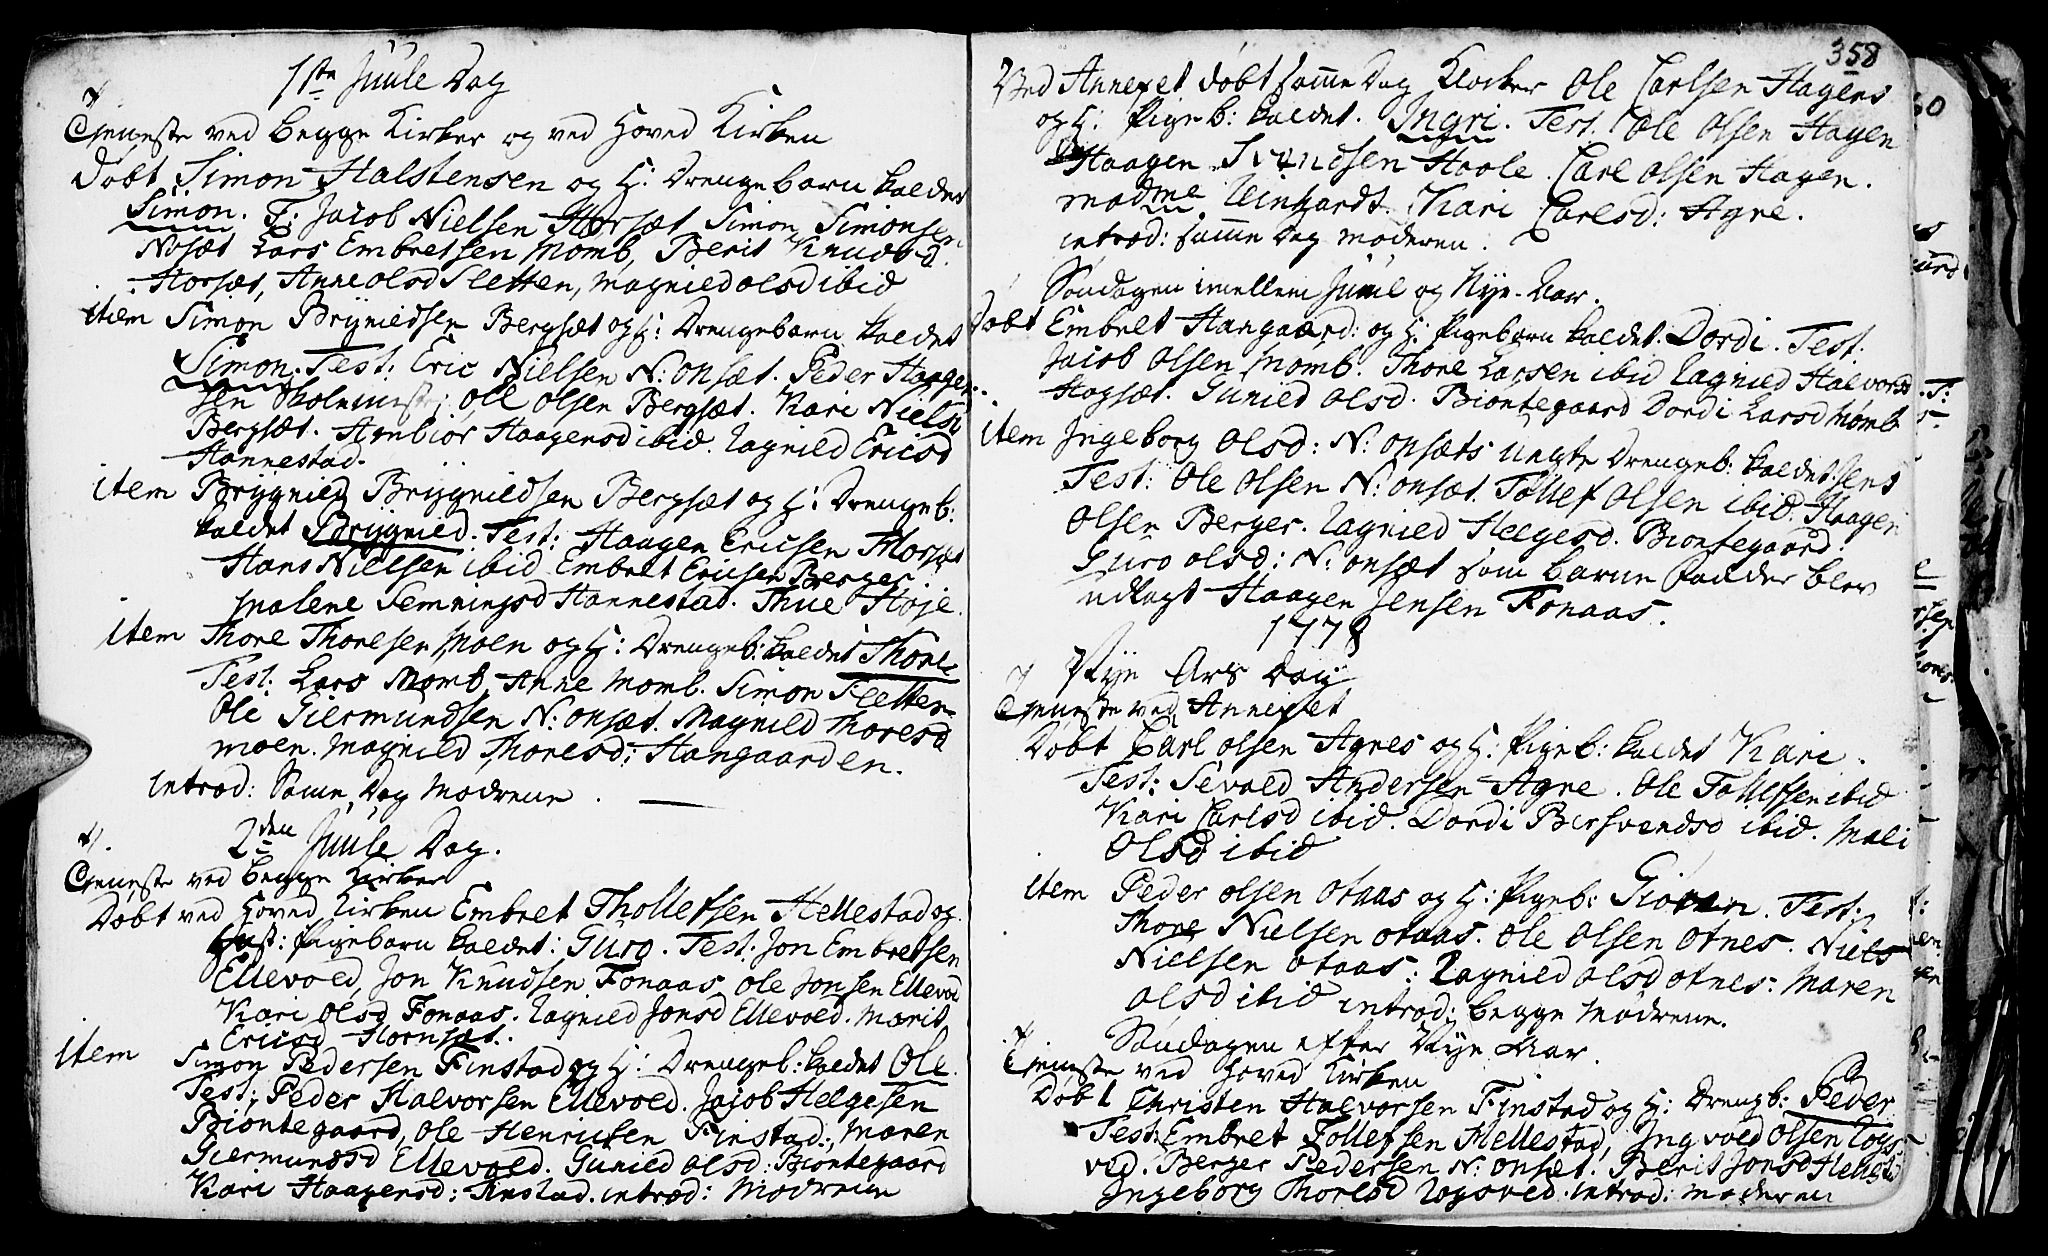 1ste Juule Dag
Tjeneste ved begge Kirker og ved Hoved Kirken
Døbt Simon Halstensen og H: Drengebarn kaldet
Simon. T: Jacob Nielsen Horsæt Simon Simonsen
Nosæt Lars Embretsen Momb, Berit Knudsd.
Horsæt, Anne Olsd Sletten, Magnild Olsd ibid
item Simon Brynildsen Bergsæt og H: Drengebarn kaldet
Simon. Test: Eric Nielsen N: Onsæt. Peder Haagen-
sen Skolemester, Ole Olsen Bergsæt. Kari Nielsd
Bergsæt. Arnbiør Haagensd ibid. Ragnild Ericsd
Hannestad.
item Brygnild Brygnildsen Bergsæt og H: Drengeb:
kaldet Brygnild. Test: Haagen Ericsen Horsæt
Hans Nielsen ibid Embret Ericsen Berger.
Malene Semningsd Hannestad. Thue Høje.
item Thore Thoresen Moen og H: Drengeb: kaldet Thore
Test: Lars Momb Anne Momb. Simon Sletten
Ole Giermundsen N: Onsæt. Magnild Thoresd
moen. Magnild Thoresd: Hangaarden.
introd: Samme Dag Mødrene.
2den Juule Dag.
Tjeneste ved begge Kirker
Døbt ved Hoved Kirken Embret Tholletsen Hellestad og
Hust: Pigebarn kaldet: Guro. Test: Jon Embretsen
Ellevold, Jon Knudsen Fonaas, Ole Jonsen Ellevol
Kari Olsd Fonaas. Ragnild Jonsd Ellevold. Marit
Ericsd Hornset.
item Simon Pedersen Finstad og H: Drengeb: kaldet Ole.
Test: Peder Halvorsen Ellevold. Jacob Helgesen
Biøntegaard, Ole Henricsen Finstad, Maren
Giermundsd Ellevold. Gunild Olsd: Biøntegaard
Kari Haagensd: Finstad. introd: Mødrene
358
Ved Annexet døbt samme Dag Klocker Ole Carlsen Hagens
og H: Pigeb: kaldet. Ingri. Test. Ole Olsen Hagen
Haagen Svendsen Haole. Carl Olsen Hagen.
madme Weinhardt. Kari Carlsd: Agre.
introd: samme Dag moderen.
Søndagen imellem Juul og Nye-Aar.
Døbt Embret Hangaard: og H: Pigebarn kaldet. Dordi. Test:
Jacob Olsen Momb. Thore Larsen ibid Ragnild Halvorsd
Hogsæt. Gunild Olsd. Biøntegaard Dordi Larsd Momb
item Ingeborg Olsd: N: Onsæts uægte Drengeb: kaldet: Jens
Test: Ole Olsen N: Onsæt. Tollef Olsen ibid. Haagen
Olsen Berger. Ragnild Helgesd. Biøntegaard.
Guro Olsd: N: Onsæt som Barne Fader blev
udlagt Haagen Jensen Fonaas.
1778
Nye Ars Dag
Tjeneste ved Annexet
Døbt Carl Olsen Agres og H: Pigeb: kaldet Kari.
Test: Sevold Andersen Agre. Ole Tollefsen ibid
Kari Carlsd ibid. Dordi Bersvendsd ibid. Mali
Olsd ibid
item Peder Olsen Otaas og H: Pigeb: Giøren. Test:
Thore Nielsen Otaas. Ole Olsen Otnes. Niels
Nielsen Otaas: Ragnild Olsd Otnes: Maren
Olsd ibid introd: begge Mødrene.
Søndagen efter Nye Aar.
Tjeneste ved Hoved Kirken
Døbt Christen Halvorsen Finstad og H: Drengb: Peder
Test: Embret Tollefsen Hellestad, Ingvold Olsen Rogs
ved. Berger Pedersen N: Onsæt. Berit Jonsd Hellestd
Ingeborg Thorlsd Rogsved. introd: moderen